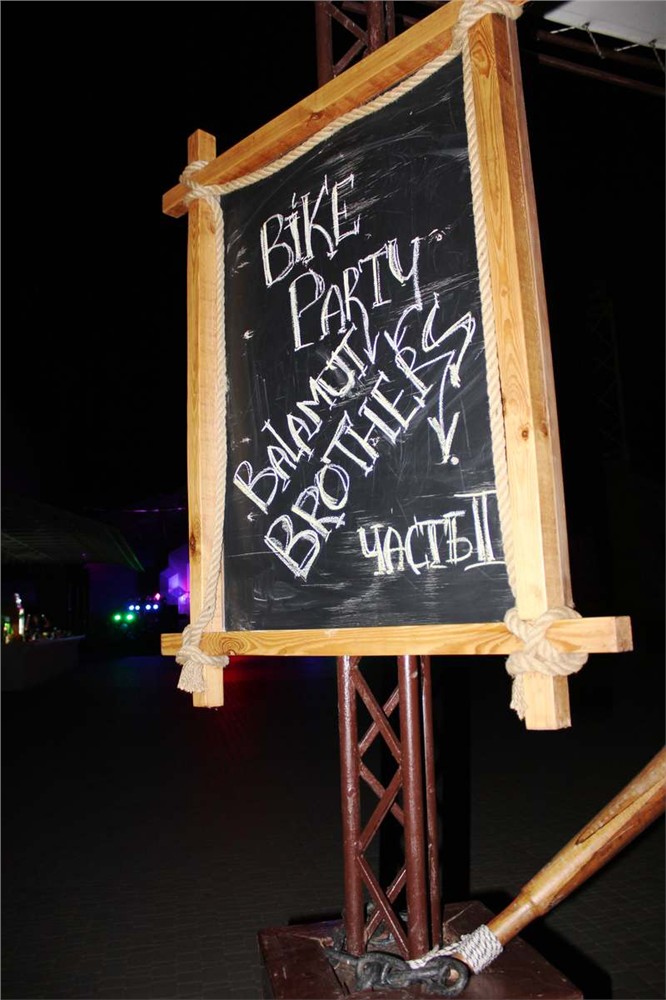 BiKE
PARTY
BALAMUT
BROTHERS
ЧАСТЬ II